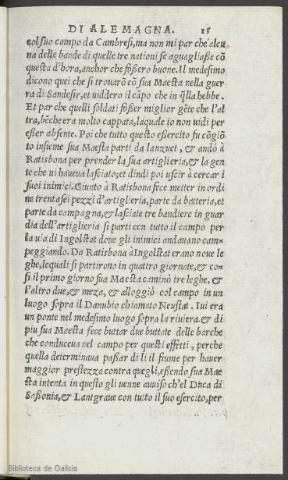 DI ALEMAGNA. 15
col suo campo da Cambresi, ma non mi par che alcu
na delle bande di quelle tre nationi se aguagliasse cō
questa d'hora, anchor che fossero buone. Il medesimo
dicono quei che si trovarō cō sua Maesta nella guer
ra di Sandesir, et viddero il cāpo che in q̄lla hebbe.
Et par che quelli soldati fosser miglior gēte che l'al
tra, bēche era molto cappata, laquale io non vidi per
esser absente. Poi che tutto questo essercito fu cōgiō
to insieme sua Maesta parti da lanzuet, & andò à
Ratisbona per prender la sua artiglieria, & la gen
te che vi haveva lasciato, et dindi poi uscir à cercar i
suoi inimici. Giunto à Ratisbona fece metter in ordi
ne trentasei pezzi d'artiglieria, parte da batteria, et
parte da campagna, & lasciate tre bandiere in guar
dia dell'artiglieria si parti con tutto il campo per
la via di Ingolstat dove gli inimici andavano cam-
peggiando. Da Ratisbona à Ingolstat erano nove le
ghe, lequali si partirono in quattro giornate, & co-
si il primo giorno sua Maesta caminò tre leghe, &
l'altro due, & meza, & alloggiò col campo in un
luogo sopra il Danubio chiamato Neustat. Ivi era
un ponte nel medesimo luogo sopra la riviera. & di
piu sua Maesta fece buttar due buttate delle barche
che conduceva nel campo per questi effetti, perche
quella determinava passar di li il fiume per haver
maggior prestezza contra quegli, essendo sua Maes
ta intenta in questo gli venne avviso ch'el Duca di
Sassonia, & Lantgrave con tutto il suo esercito, per
Biblioteca de Galicia